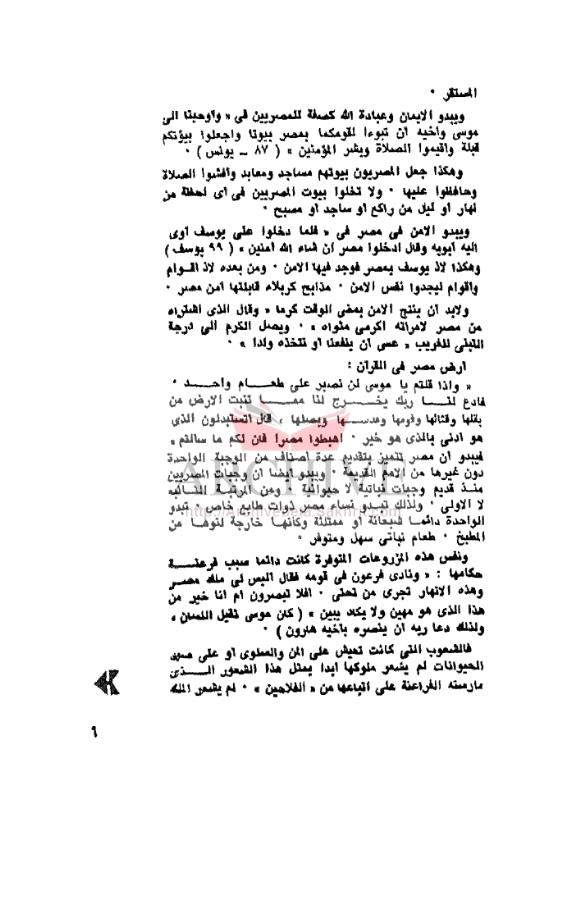 المستقر ٠
ويبدو الايمان وعبادة الله كصفة للمصريين فى « وأوحينا الى
موسى وأخيه أن تبوءا لقومكما بمصر بيوتا واجعلوا بيوتكم
قبلة وأقيموا الصلاة وبشر المؤمنين » ( ٨٧ ـ يونس ) ٠
وهكذا جعل المصريون بيوتهم مساجد ومعابد وأفشوا الصلاة
وحافظوا عليها ٠ ولا تخلوا بيوت المصريين فى أى لحظة من
نهار أو ليل من راكع أو ساجد أو مسبح ٠
ويبدو الامن فى مصر فى « فلما دخلوا على يوسف آوى
اليه أبويه وقال ادخلوا مصر ان شاء الله آمنين » ( ٩٩ يوسف )
وهكذا لاذ يوسف بمصر فوجد فيها الامن ٠ ومن بعده لاذ أقوام
وأقوام ليجدوا نفس الامن ٠ مذابح كربلاء قابلتها أمن مصر ٠
ولابد أن ينتج الامن بمضى الوقت كرما « وقال الذى اشتراه
من مصر لامرأته أكرمى مثواه » ٠ ويصل الكرم الى درجة
التبنى للغريب « عسى أن ينفعنا أو نتخذه ولدا » ٠
أرض مصر فى القرآن :
« واذا قلتم يا موسى لن نصبر على طعــام واحــد ٠
فادع لنــا ربك يخــرج لنا ممــا تنبت الارض من
بقلها وقثائها وفومها وعدســها وبصلها ، قال أتستبدلون الذى
هو أدنى بالذى هو خير ٠ اهبطوا مصرا فان لكم ما سألتم »
فيبدو أن مصر تتميز بتقديم عدة أصناف من الوجبة الواحدة
دون غيرها من الامم القديمة ٠ ويبدو أيضا أن وجبات المصريين
منــذ قديم وجبات نباتية لا حيوانية ٠ ومن المرتبة الثــانية
لا الاولى ٠ ولذلك تبــدو نساء مصر ذوات طابع خاص ٠ تبدو
الواحدة دائمــا شبعانة أو ممتلئة وكأنهــا خارجة لتوهــا من
المطبخ ٠ طعام نباتى سهل ومتوفر ٠
ونفس هذه المزروعات المتوفرة كانت دائما سبب فرعنــة
حكامها : « ونادى فرعون فى قومه فقال أليس لى ملك مصــر
وهذه الانهار تجرى من تحتى ٠ أفلا تبصرون أم أنا خير من
هذا الذى هو مهين ولا يكاد يبين » ( كان موسى ثقيل اللسان ،
ولذلك دعا ربه أن ينصره بأخيه هارون ) ٠
فالشعوب التى كانت تعيش على المن والسلوى أو على صيد
الحيوانات لم يشعر ملوكها أبدا بمثل هذا الشعور الــذى
مارسته الفراعنة على أتباعها من « الفلاحين » ٠ لم يشعر الملك
٦
ARCHIVE
http://Archivebeta.Sakhrit.com